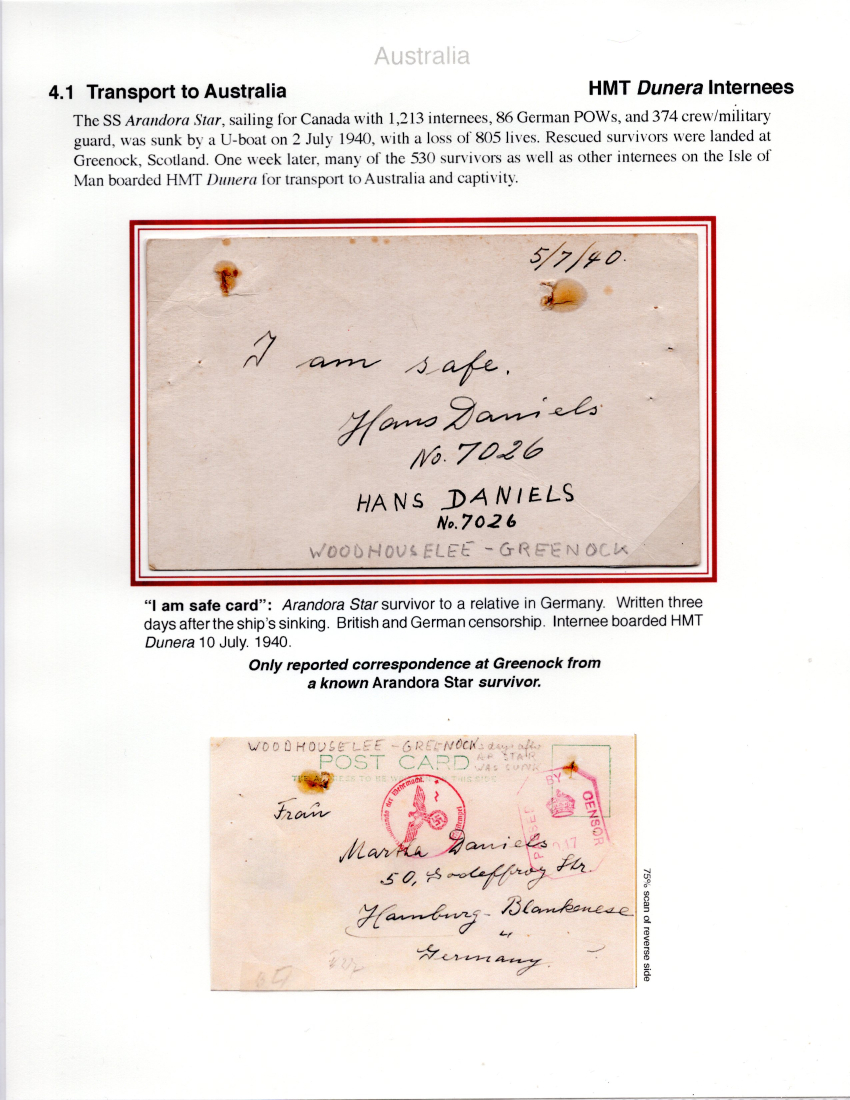 Australia
4.1 Transport to Australia
HMT Dunera Internees
The SS Arandora Star, sailing for Canada with 1,213 internees, 86 German POWs, and 374 crew/military
guard, was sunk by a U-boat on 2 July 1940, with a loss of 805 lives. Rescued survivors were landed at
Greenock, Scotland. One week later, many of the 530 survivors as well as other internees on the Isle of
Man boarded HMT Dunera for transport to Australia and captivity.
5/7/40.
I am safe.
Hans Daniels
No. 7026
HANS DANIELS
No. 7026
WOODHOUSELEE - GREENOCK
“I am safe card”: Arandora Star survivor to a relative in Germany. Written three
days after the ship's sinking. British and German censorship. Internee boarded HMT
Dunera 10 July. 1940.
Only reported correspondence at Greenock from
a known Arandora Star survivor.
WOODHOUSELEE - GREENOCK
days after
STAR
WAS SUNK
POST CARD
THIS SIDE
PASSED BY CENSOR
Frau
Martha Daniels
50, Godeffroy Str.
Hamburg - Blankenese
Germany.
75% scan of reverse side